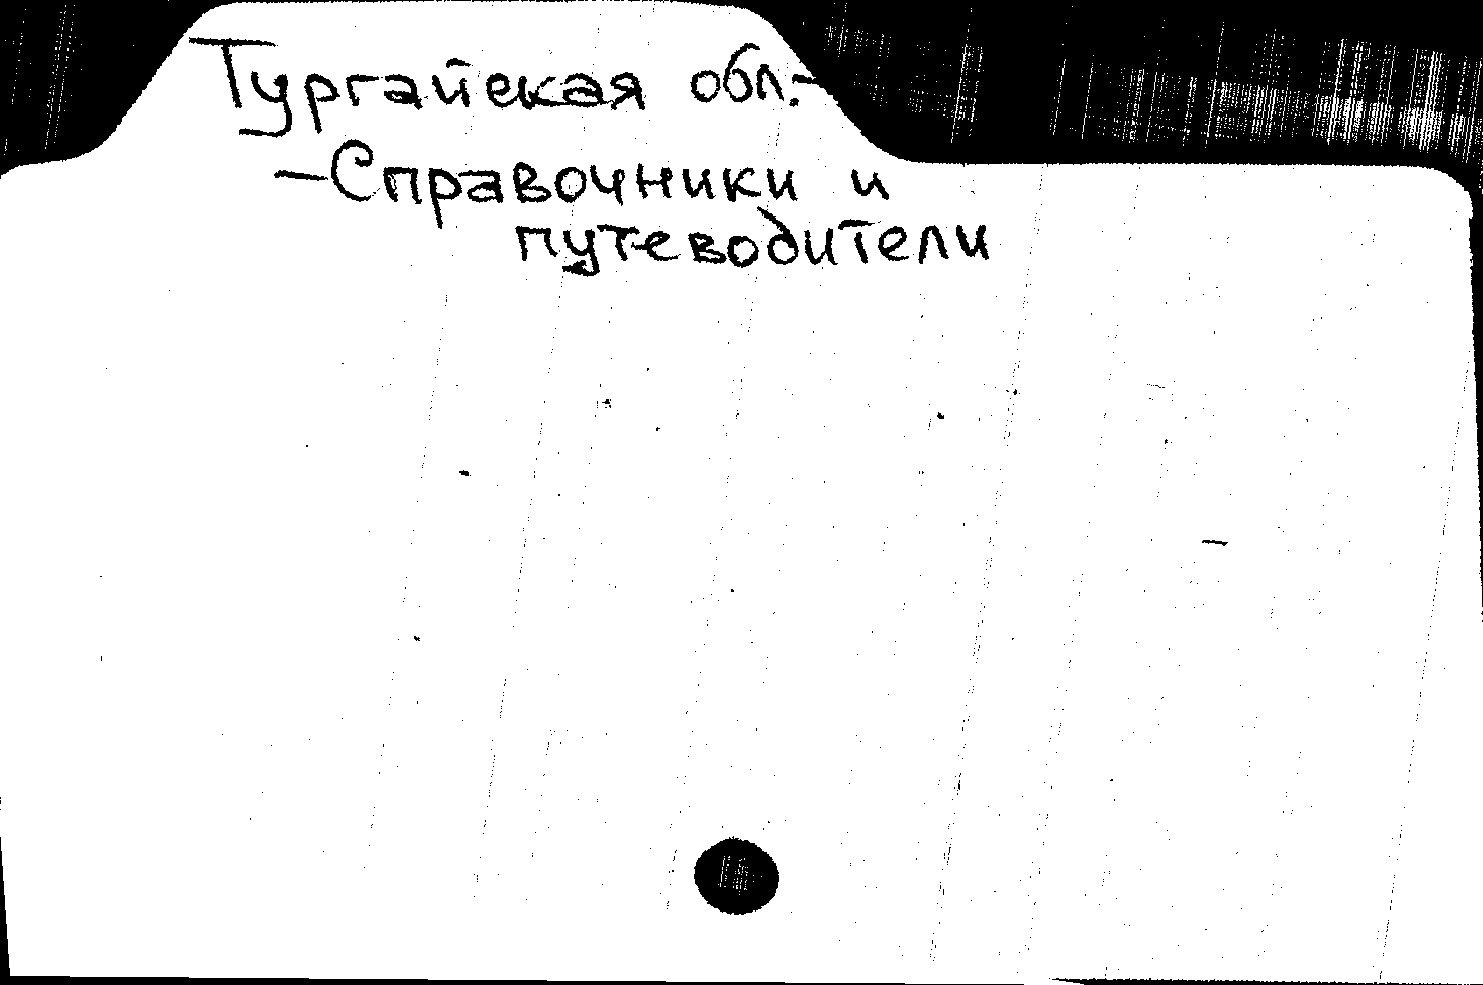 Тургайская обл.-
-Справочники и
путеводители